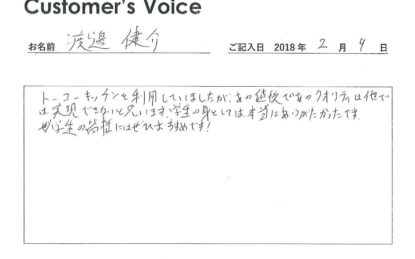 Customer's Voice
お名前 渡邉 健介 ご記入日 2018年 2月 9日
トーコーキッチンを利用していましたが、あの値段であのクオリティは他で
は実現できないと思います。学生の身としては本当にありがたかったです
学生の皆様にはぜひおすすめです!